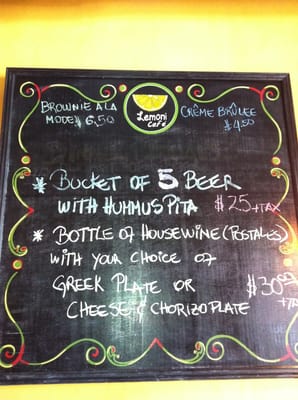 BROWNIE A LA
MODE $6.50
Lemoni
Café
CRÈME BRÛLEE
$4.50
* BUCKET OF 5 BEER
WITH HUMMUS PITA $25+TAX
* BOTTLE OF HOUSEWINE (POSTALES)
WITH YOUR CHOICE OF
GREEK PLATE OR $30.00
CHEESE & CHORIZO PLATE +TA